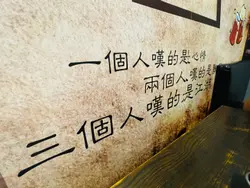 一個人嘆的是心情
兩個人嘆的是
三個人嘆的是江湖